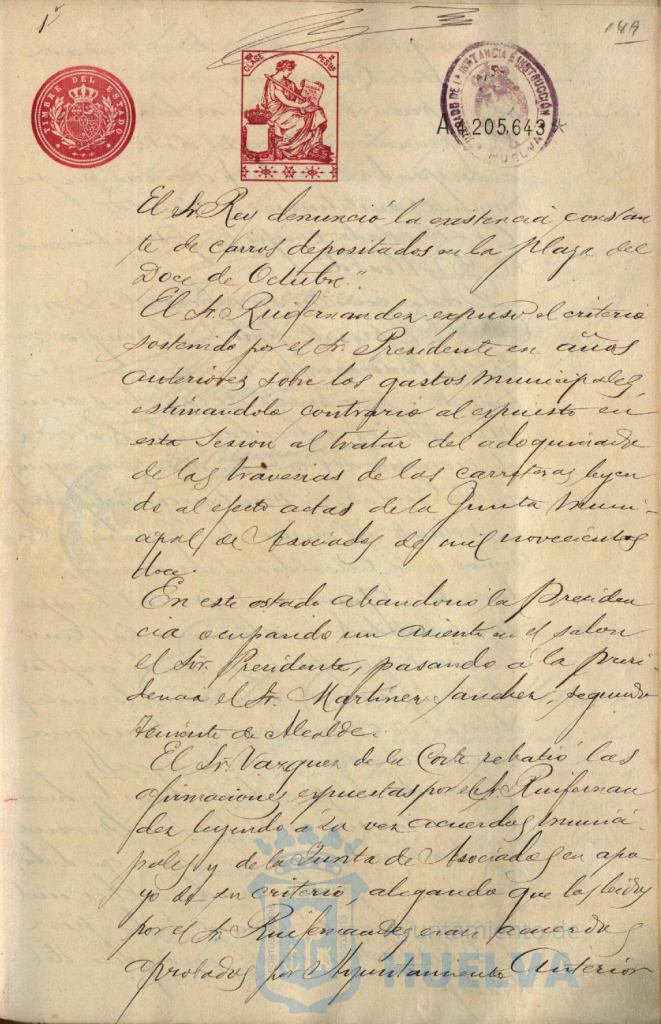 1ª
149
TIMBRE DEL ESTADO
CLASE
PESETAS
JUZGADO DE 1ª INSTANCIA E INSTRUCCIÓN
HUELVA
A.4.205,643 *
El Sr. Rey denunció la existencia constan
te de carros depositados en la Plaza del
Doce de Octubre".
El Sr. Ruifernandez expuso el criterio
sostenido por el Sr. Presidente en años
anteriores sobre los gastos municipales,
estimándolo contrario al expuesto en
esta sesion al tratar del adoquinado
de las travesias de las carreteras leyen
do al efecto actas de la Junta Muni-
cipal de Asociados de mil novecientos
doce.
En este estado abandonó la Presiden
cia ocupando un asiento en el salon
el Sor. Presidente, pasando á la presi
dencia el Sr. Martinez Sanchez, segundo
teniente de Alcalde.
El Sr. Vazquez de la Corte rebatió las
afirmaciones expuestas por el Sr. Ruifernan
dez leyendo á su vez acuerdos munici-
pales y de la Junta de Asociados en apo-
yo de su criterio, alegando que los leidos
por el Sr. Ruifernandez eran acuerdos
aprobados por Ayuntamiento anterior
Ayuntamiento de
HUELVA